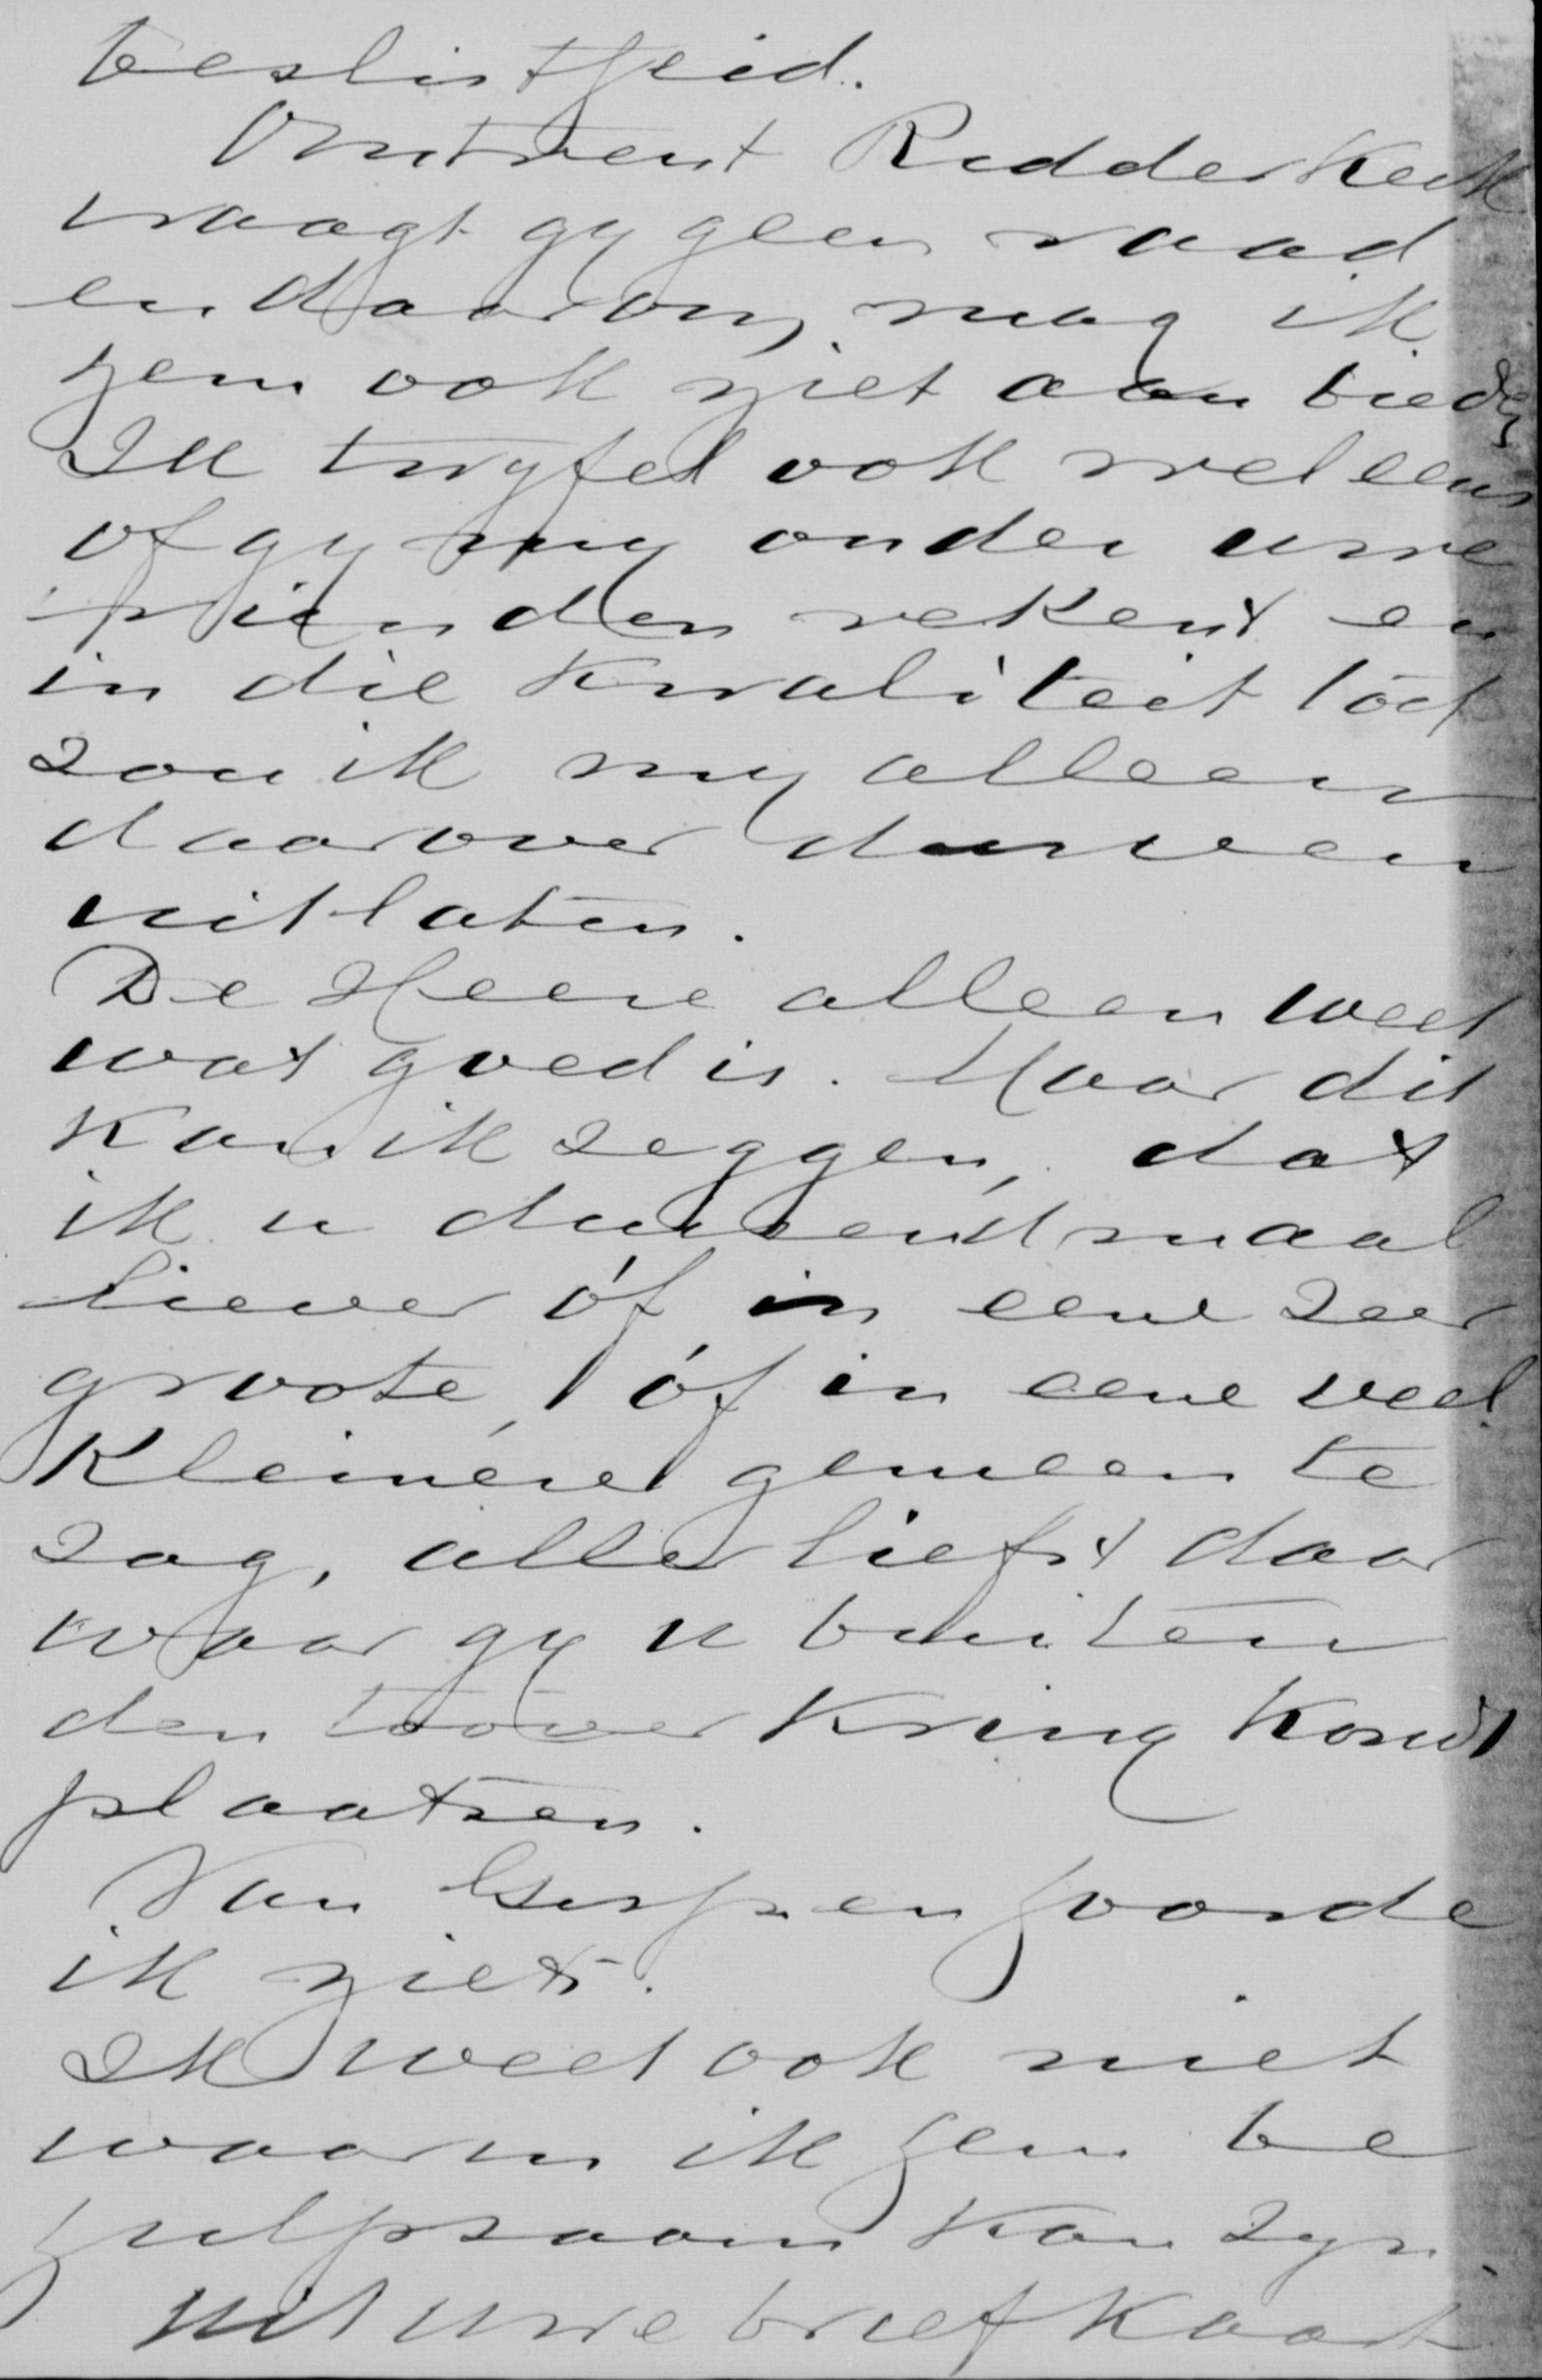 beslistheid.
Omtrent Ridderkerk
vraagt gy geen raad
en daarom mag ik
hem ook niet aan bieden
Ik twyfel ook wel eens
of gy my onder uwe
vrienden rekent en
in die kwaliteit toch
zou ik my alleen
daarover durven
uitlaten.
De Heere alleen weet
wat goed is. Maar dit
kan ik zeggen, dat
ik u duizendmaal
liever óf in eene zeer
groote, óf in eene veel
kleinere gemeente
zag, allerliefst daar
waar gy u buiten
den toover kring kondt
plaatsen.
Van Gerpen hoorde
ik niets.
Ik weet ook niet
waarin ik hem be
hulpzaam kan zyn.
Uit uwe briefkaart